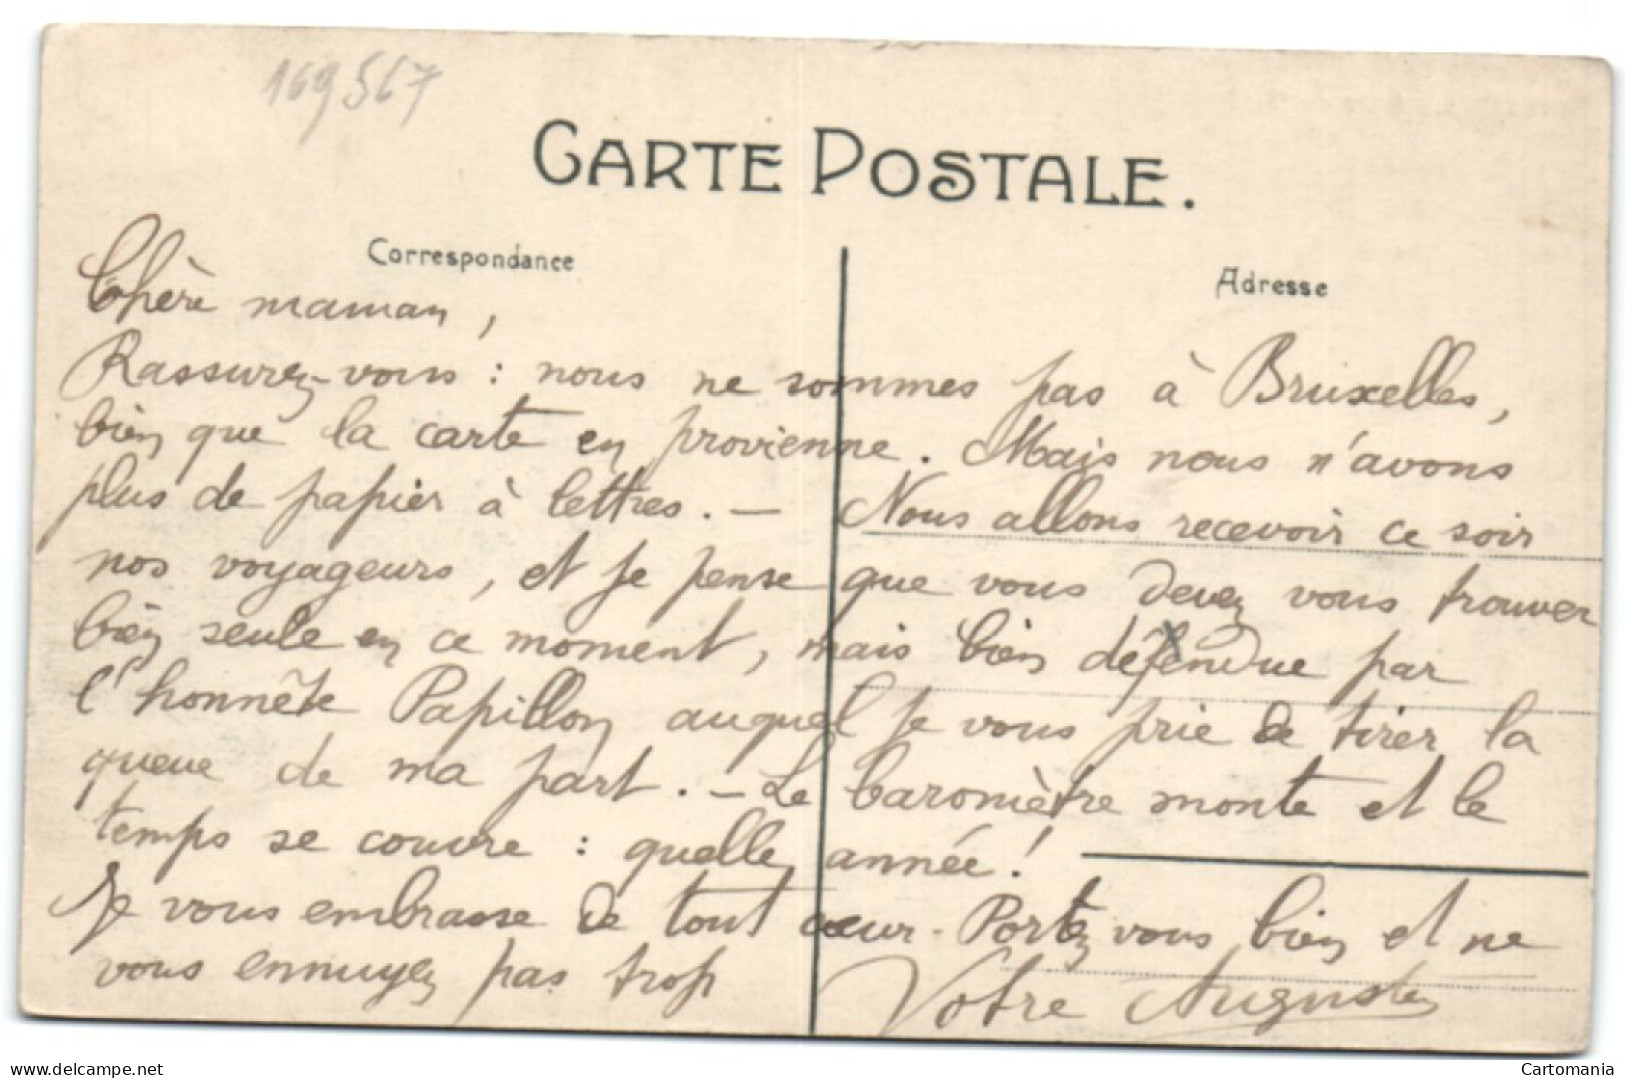 169567
CARTE POSTALE.
Correspondance
Adresse
Chère maman,
Rassurez-vous : nous ne sommes pas à Bruxelles,
bien que la carte en provienne. Mais nous n'avons
plus de papier à lettres. — Nous allons recevoir ce soir
nos voyageurs, et je pense que vous devez vous trouver
bien seule en ce moment, mais bien défendue par
l'honnête Papillon auquel je vous prie de tirer la
queue de ma part. — Le baromètre monte et le
temps se couvre : quelle année !
Je vous embrasse de tout cœur. Portez vous bien et ne
vous ennuyez pas trop
Votre Augustin
www.delcampe.net
Cartomania